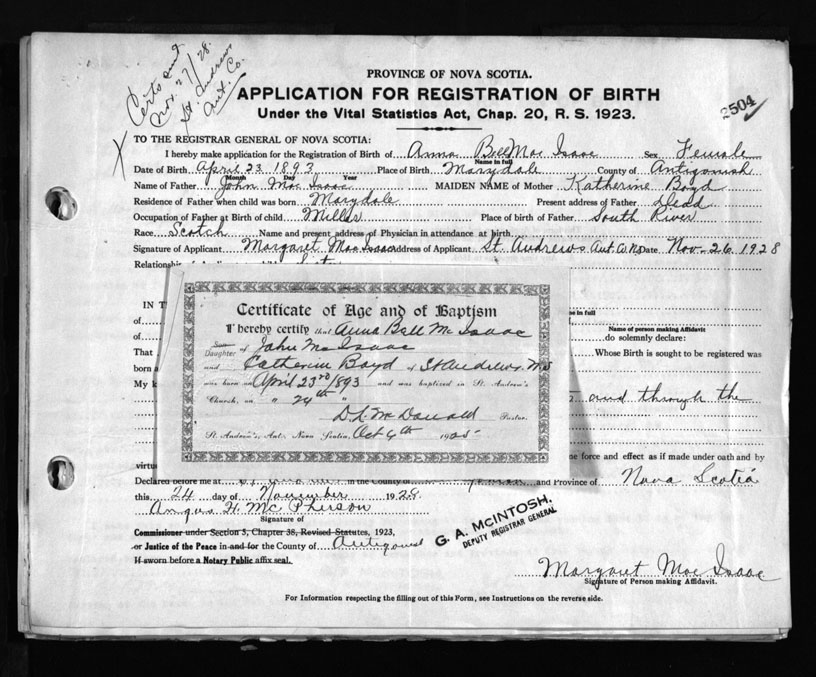 Certs sent
Nov. 27/28.
St. Andrews
Ant. Co.
PROVINCE OF NOVA SCOTIA.
APPLICATION FOR REGISTRATION OF BIRTH
Under the Vital Statistics Act, Chap. 20, R. S. 1923.
2504
X
TO THE REGISTRAR GENERAL OF NOVA SCOTIA:
I hereby make application for the Registration of Birth of Anna Bell Mac Isaac Sex Female
Name in full
Date of Birth April 23 1893 Place of Birth Marydale County of Antigonish
Month Day Year
Name of Father John Mac Isaac MAIDEN NAME of Mother Katherine Boyd
Residence of Father when child was born Marydale Present address of Father Dead
Occupation of Father at Birth of child Miller Place of birth of Father South River
Race Scotch Name and present address of Physician in attendance at birth
Signature of Applicant Margaret Mac Isaac Address of Applicant St. Andrews Ant. Co. N.S. Date Nov. 26 1928
Relationship
IN T
in full
of
Name of person making Affidavit
of do solemnly declare:
That Whose Birth is sought to be registered was
born a
My k and through the
Certificate of Age and of Baptism
I hereby certify that Anna Bell McIsaac
Son
Daughter of John McIsaac
and Catherine Boyd of St Andrews, N.S
was born on April 23rd 1893 and was baptized in St. Andrew's
Church, on " 24th "
D. L. McDonald Pastor.
St. Andrew's, Ant., Nova Scotia, Oct 6th 1925
me force and effect as if made under oath and by
virtu
Declared before me at in the County of and Province of Nova Scotia
this 24 day of November 1928
Angus H. McPherson
Signature of
Commissioner under Section 5, Chapter 38, Revised Statutes, 1923,
or Justice of the Peace in and for the County of Antigonish
If sworn before a Notary Public affix seal.
G. A. MCINTOSH,
DEPUTY REGISTRAR GENERAL
Margaret Mac Isaac
Signature of Person making Affidavit.
For Information respecting the filling out of this Form, see Instructions on the reverse side.